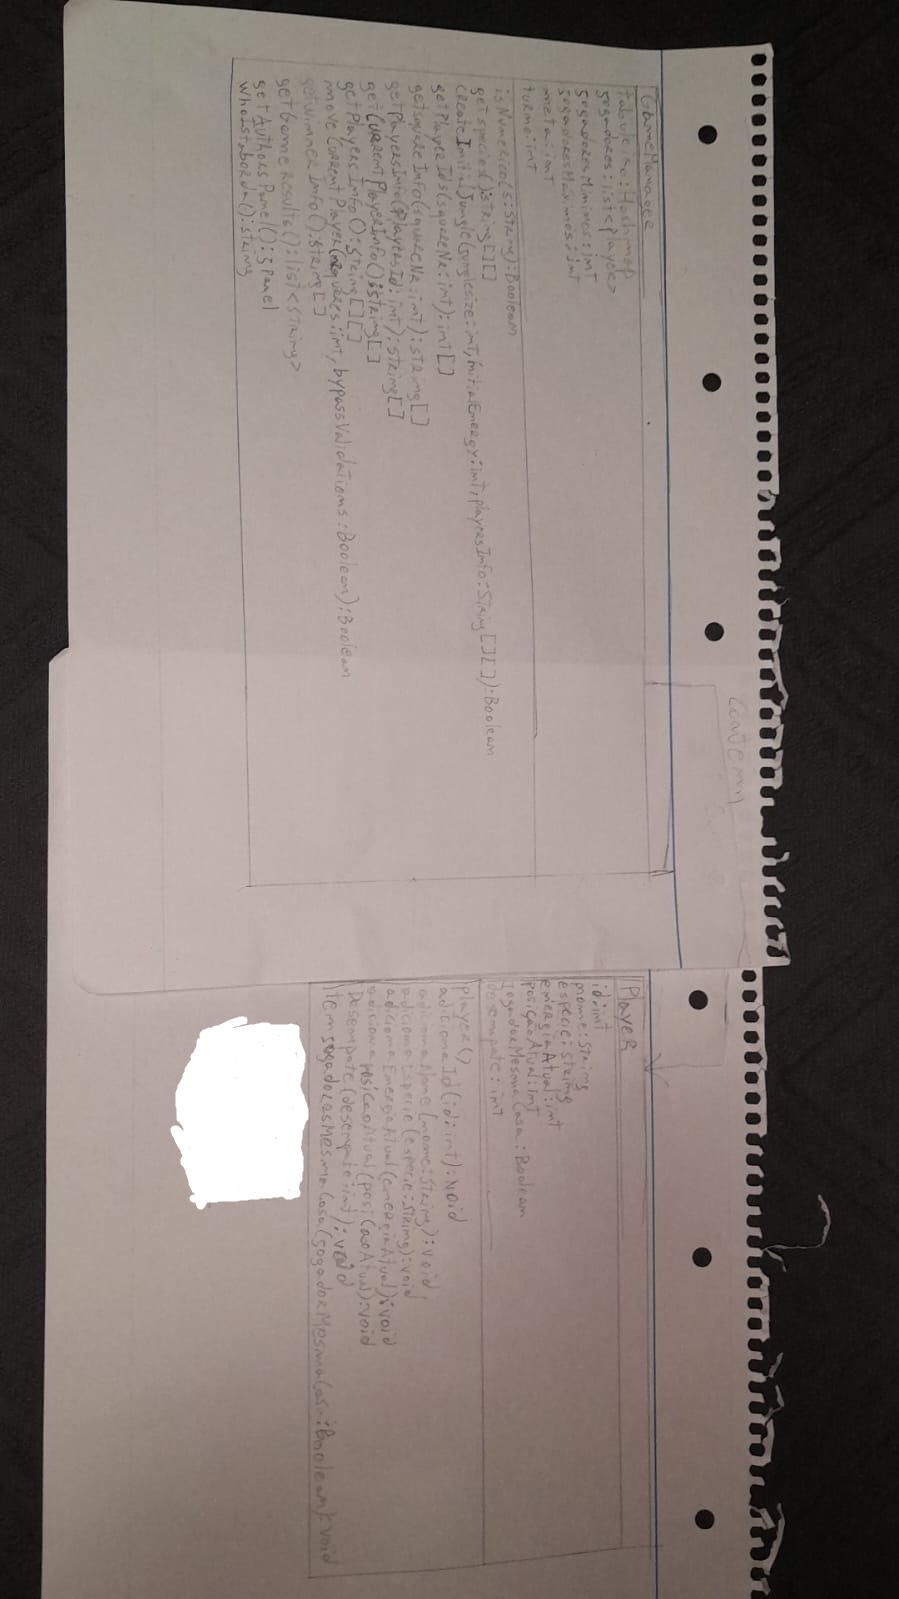 GameManager
tabuleiro: Hashmap
jogadores: list<player>
jogadoresMinimos: int
jogadoresMaximos: int
meta: int
turno: int
isNumerico(s: String): Boolean
getspecies(): string[][]
createInitialJungle(junglesize: int, initialEnergy: int, playersInfo: String[][]): Boolean
getPlayerIds(squareNr: int): int[]
getsquareInfo(squareNr: int): string[]
getPlayersInfo(playersId: int): string[]
getCurrentPlayerInfo(): string[]
getPlayersInfo(): string[][]
moveCurrentPlayer(nrSquares: int, bypassValidations: Boolean): Boolean
getwinnerInfo(): string[]
getGameresults(): list<string>
getAuthorsPanel(): jPanel
whoIstaborda(): string
contem
Player
id: int
nome: String
especie: string
energiaAtual: int
posiçãoAtual: int
jogadorMesmaCasa: Boolean
desempate: int
player()
adicionaId(id: int): void
adicionaNome(nome: String): void
adicionaEspecie(especie: string): void
adicionaEnergiaAtual(energiaAtual): void
adicionaPosicaoAtual(posicaoAtual): void
Desempate(desempate: int): void
temjogadoresMesmaCasa(jogadorMesmaCasa: Boolean): void